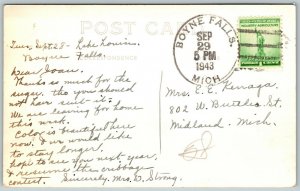 POST CARD
CORRESPONDENCE
Tues. Sept. 28 - Lake Louise,
Boyne Falls.
Dear Joan,
Thanks so much for the
sugar, tho you should
not have sent it.
We are leaving for home
this week.
Color is beautiful here
now, & we would like
to stay longer.
Hope to see you next year,
& resume the cribbage
contest. Sincerely, Mrs. D. Strong.
BOYNE FALLS.
SEP
29
5 PM
1943
MICH
Mrs. E. E.
802 W.
Midland, Mich.